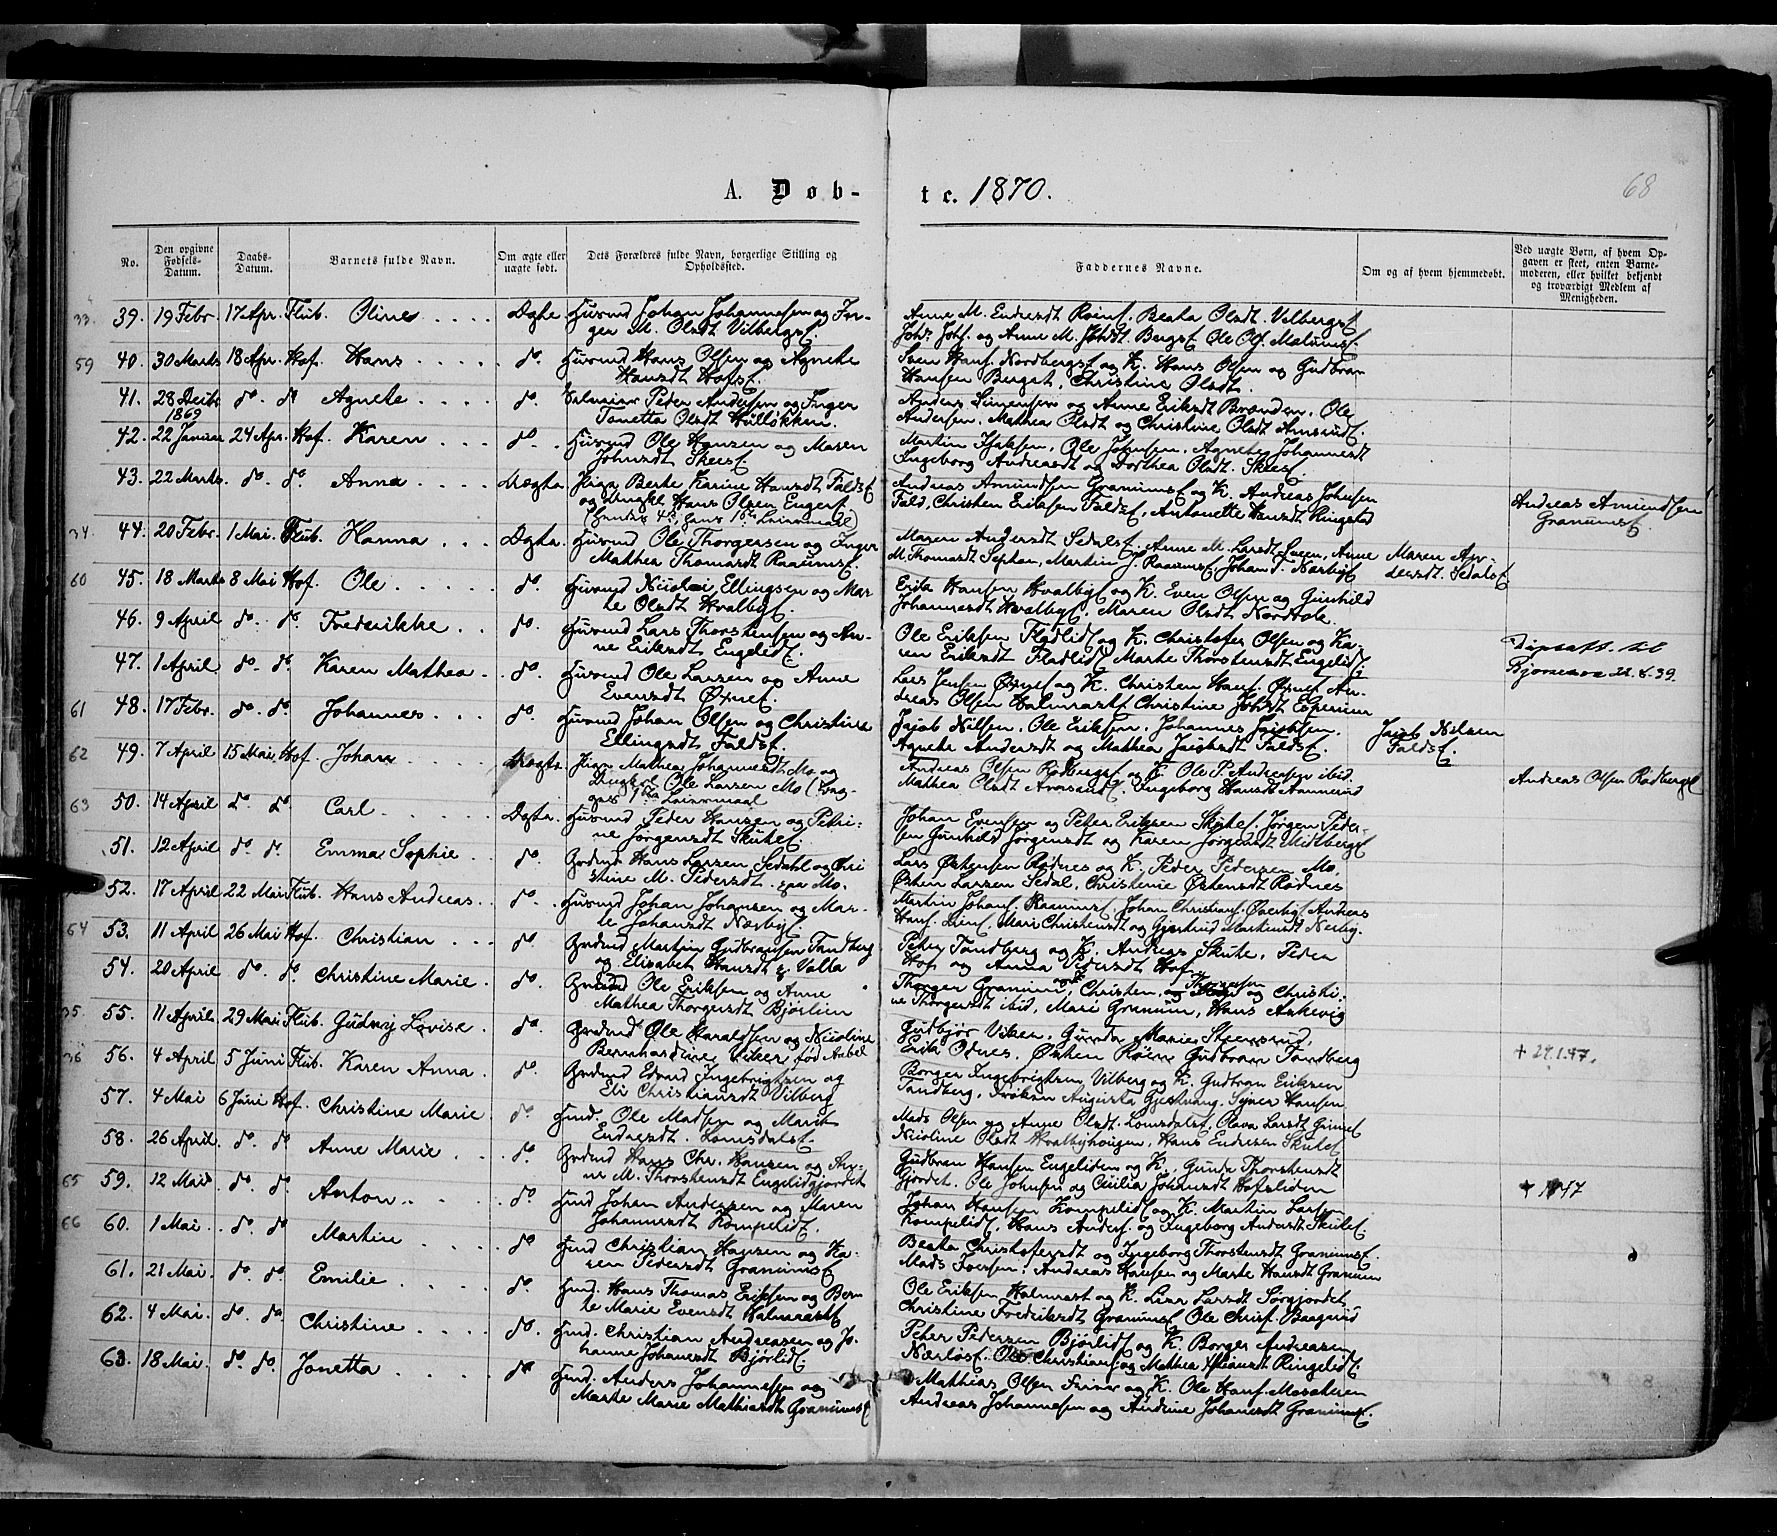 A. Døb-
te. 1870.
68
No.
Den opgivne Fødsels-Datum.
Daabs-Datum.
Barnets fulde Navn.
Om ægte eller uægte født.
Dets Forældres fulde Navn, borgerlige Stilling og Opholdssted.
Faddernes Navne.
Om og af hvem hjemmedøbt.
Ved uægte Børn, af hvem Op-
gaven er skeet, enten Barne-
moderen, eller hvilket bekjendt
og troværdigt Medlem af
Menigheden.
33. 39. 19 Febr. 17 Apr. Flub. Oline Ægte. Huusmd Johan Johannesen og In-
ger M. Olsdt Vilbergsf.
Anne M. Endresdt Beata Olsdt. Vilbergsf.
Johs. Johs. og Anne M. Johsdt Bergsf. Ole Ols. Malumsf.
59 40. 30 Marts 18 Apr. Hof. Hans do. Huusmd Hans Olsen og Agnete
Hansdt Hofsf.
Sven Hans. Nordbergsf og K. Hans Olsen og Gudbran
Hansen Berget, Christine Olsdt.
41. 28 Decbr 1869 do. do Agnete do. Peder Andersen og Inger
Tonetta Olsdt Hulløkken.
Anders Simensen og Anne Eriksdt Brænden. Ole
Andersen. Mathea Olsdt og Christine Olsdt Amrudsf.
42. 22 Januar 24 Apr. Hof. Karen do. Huusmd Ole Hansen og Maren
Johnsdt Skeesf.
Martin Ole Johnsen. Agnethe Johannesdt
Ingeborg Andreasdt og Dorthea Olsdt. Skeesf.
43. 22 Marts. do. do Anna Uægte. Pige Berte Karine Hansdt Faldsf
og Ungkl Hans Olsen Engersf
(hendes 4de, hans 1ste Leiermaal)
Andreas Amundsen Granumsf og K. Andreas Johnsen
Fald, Christen Eriksen Faldsf, Antonette Hansdt Ringelid
Andreas Amundsen
Granumsf.
34. 44. 20 Febr. 1 Mai. Flub. Hanna Ægte. Huusmd Ole Thorgersen og Inger
Mathea Thomasdt Raaumsf.
Maren Andersdt Sedalsf. Anne M. Larsdt Anne
M. Thomasdt Martin J. Raaumsf, Johan J. Nærbyf
Maren An-
dersdt. Sedalsf
60 45. 18 Marts 8 Mai Hof. Ole do. Huusmd Nicolai Ellingsen og Mar-
te Olsdt Hvalbyf.
Erik Hansen Hvalbyf og K. Even Olsen og Gunhild
Johannesdt Hvalbyf. Maren Olsdt
46. 9 April do. do. Frederikke do. Huusmd Lars Thorstensen og An-
ne Eriksdt Engelidf.
Ole Eriksen Fladlidf og K. Christofer Olsen og Ka-
ren Eriksdt Fladlidf Marte Thorstensdt Engelidf.
47. 1 April do. do. Karen Mathea do. Huusmd Ole Larsen og Anne
Evensdt Øxnef.
Lars Jensen Øxnef og K. Christen Hans. Øxnef An-
dreas Olsen Halmrastf Christine Johsdt
Dipsatt. til
22.8.39.
61 48. 17 Febr. do. do. Johannes do. Huusmd Johan Olsen og Christine
Ellingsdt Faldsf.
Jacob Nilsen. Ole Eriksen. Johannes Jacobsen.
Agnete Andersdt og Mathea Jacobsdt Faldsf.
Jacob Nilsen
Faldsf.
62 49. 7 April 15 Mai. Hof. Johan Uægte. Pige Mathea Johannesdt Mo og
Ungkarl Ole Larsen Mo (beg-
ges 1ste Leiermaal
Andreas Olsen Rødbergsf og K. Ole P. Andersen ibid.
Mathea Olsdt Ingeborg Hansdt
Andreas Olsen Rødbergsf
63 50. 14 April do. do. Carl Ægte. Huusmd Peder Hansen og Petri-
ne Jørgensdt Skutef.
Johan Evensen og Peter Eriksen Skutef. Jørgen Peder-
sen Gunhild Jørgensdt og Karen Jørgensdt Midlbergf
51. 12 April do. do. Emma Sophie do. Grdmd Hans Larsen Sedahl og Chri
stine M. Pedersdt. Mo.
Lars Østensen Rødnes og K. Peder Pedersen Mo.
Østen Larsen Sedal, Christine Østensdt Rødnes
52. 17 April 22 Mai Flub. Hans Andreas do. Huusmd Johan Johansen og Mar-
te Johansdt Nærbyf.
Martin Johans. Raaumsf, Johan Christians. Andreas
Hans. Mari Christensdt og Gjertrud Martinsdt Nerby.
64 53. 11 April 26 Mai Hof. Christian do. Grdmd Martin Gudbransen Tandberg
og Elisabet Hansdt f. Valla
Peter Tandberg og K. Andreas Skute, Peder
Hof og Anna Pedersdt Hof.
54. 20 April do. do Christine Marie do. Grdmd Ole Eriksen og Anne
Mathea Thorgersdt Bjørlien
Thorger Granum, Christen og Christi-
ne Thorgersdt ibid, Mari Granum, Hans Askevig
35. 55. 11 April 29 Mai Flub. Gudvig Lovise do. Grdmd Ole Haraldsen og Nicoline
Bernhardine Viker, fød Aubel
Gudbjør Viken, Gunda Marie
Erik Odnes. Østen Gudbran Tandberg
36 56. 4 April 5 Juni Flub. Karen Anna do. Grdmd Edvard Ingebrigtsen og
Eli Christiansdt Vilberg
Borger Ingebrigtsen Vilberg og K. Gudbran Eriksen
Tandberg, Frøken Augusta Gjestvang. Syver Hansen
+ 27.1.47.
57. 4 Mai 6 Juni Hof. Christine Marie do Hmd. Ole Madsen og Marit
Endresdt. Lomsdalsf.
Mads Olsen og Anne Olsdt. Lomsdalsf, Olava Larsdt
Nicoline Olsdt Hvalbyhougen, Hans Endresen Skutef
58. 26 April. do. do Anne Marie do. Grdmd Hans Chr. Hansen og An-
ne M. Thorstensdt Engelidgjordet
Gudbran Hansen Engeliden og K. Gunda Thorstensdt
Gjordet. Ole Johnsen og Cecilia Johansdt Hofsliden
65 59. 12 Mai do. do. Anton do Hmd Johan Andersen og Maren
Johannesdt Kompelidf.
Johan Hansen Kompelidf og K. Martin Larsen
Kompelidf, Hans Anders. og Ingeborg Andersdt Skutef.
+ 1947
66 60. 1 Mai. do. do Martin do Hmd Christian Hansen og Ka-
ren Pedersdt Granumsf
Beata Christofersdt og Ingeborg Thorstensdt Granumsf.
Mads Iversen, Andreas Hansen og Marte Hansdt Granum
61. 21 Mai. do. do. Emilie do. Hmd. Hans Thomas Eriksen og Ber-
te Marie Evensdt Halmrastf
Ole Eriksen Halmrast og K. Lina Larsdt Sørgjordet
Christine Fredriksdt Granumsf Ole Chrisf. Baagrud
62. 4 Mai. do. do. Christine do. Hmd. Christian Andreasen og Jo-
hanne Johansdt Bjørlidf.
Peter Pedersen Bjørlidf og K. Borger Andreasen
Ole Christians. og Mathea Ringelidf.
63. 18 Mai. do. do. Jonetta do Hmd. Anders Johannesen og
Marte Marie Mathiasdt Granumsf
Mathias Olsen og K. Ole Hans. Mosakeren
Andreas Johannesen og Andrine Johansdt Granumsf.